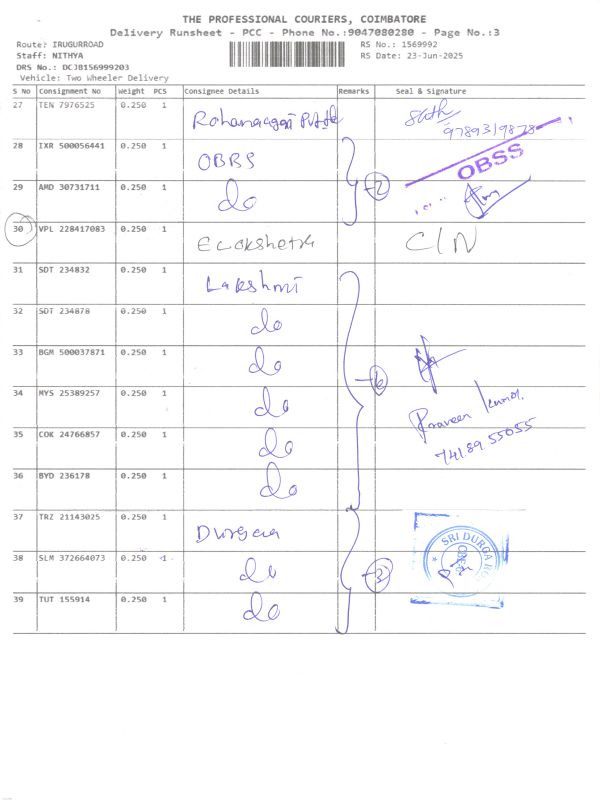 THE PROFESSIONAL COURIERS, COIMBATORE
Delivery Runsheet - PCC - Phone No.:9047080280 - Page No.:3
Route: IRUGURROAD RS No.: 1569992
Staff: NITHYA RS Date: 23-Jun-2025
DRS No.: DCJB156999203
Vehicle: Two Wheeler Delivery
S No Consignment No Weight PCS Consignee Details Remarks Seal & Signature
27 TEN 7976525 0.250 1
28 IXR 500056441 0.250 1 OBRS
OBSS
29 AMD 30731711 0.250 1 do -2
30 VPL 228417083 0.250 1 Ecokshetra C/N
31 SDT 234832 0.250 1 Lakshmi
32 SDT 234878 0.250 1 do
33 BGM 500037871 0.250 1 do
-6
34 MYS 25389257 0.250 1 do Praveen Kumar
35 COK 24766857 0.250 1 do 741.89.55055
36 BYD 236178 0.250 1 do
37 TRZ 21143025 0.250 1 Durgaa
SRI DURGA
38 SLM 372664073 0.250 1 do -3
39 TUT 155914 0.250 1 do